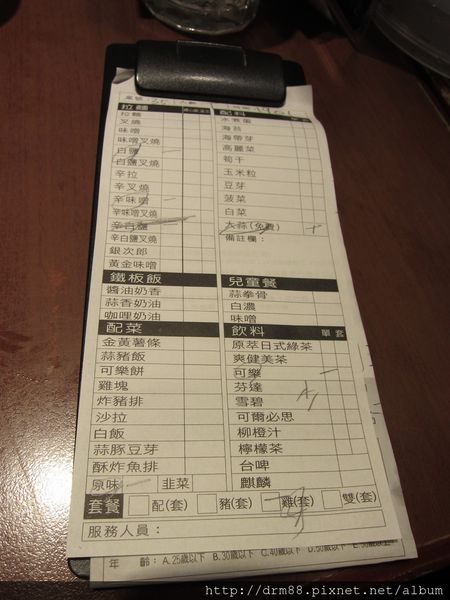 拉麵
拉麵
叉燒
味噌
味噌叉燒
白鹽
白鹽叉燒
辛拉
辛叉燒
辛味噌
辛味噌叉燒
辛白鹽
辛白鹽叉燒
銀次郎
黃金味噌
配料
水煮蛋
海苔
海帶芽
高麗菜
筍干
玉米粒
豆芽
菠菜
白菜
大蒜(免費)
備註欄:
鐵板飯
醬油奶香
蒜香奶油
咖哩奶油
兒童餐
蒜拳骨
白濃
味噌
配菜
金黃薯條
蒜豬飯
可樂餅
雞塊
炸豬排
沙拉
白飯
蒜豚豆芽
酥炸魚排
原味 韭菜
飲料 單 套
原萃日式綠茶
爽健美茶
可樂
芬達
雪碧
可爾必思
柳橙汁
檸檬茶
台啤
麒麟
套餐 配(套) 豬(套) 雞(套) 雙(套)
服務人員:
年 齡: A.25歲以下 B.30歲以下 C.40歲以下 D.50歲以下
http://drm88.pixnet.net/album